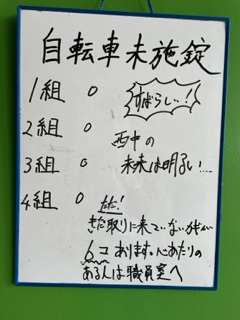 自転車未施錠
1組 0 すばらしい!
2組 0 西中の
3組 0 未来は明るい…
4組 0 ただ!
まだ取りに来ていないカギが
6コあります。心あたりの
ある人は職員室へ